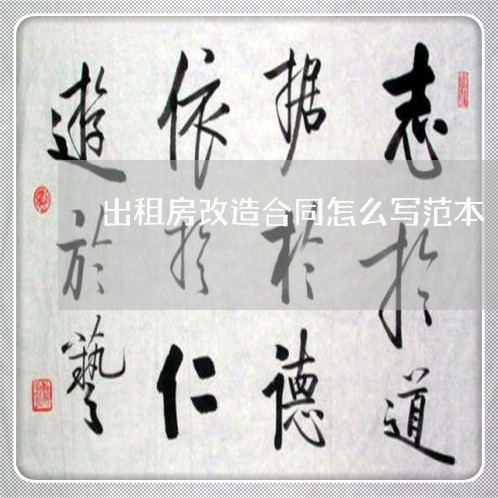 志於道
据於德
依於仁
遊於藝
出租房改造合同怎么写范本